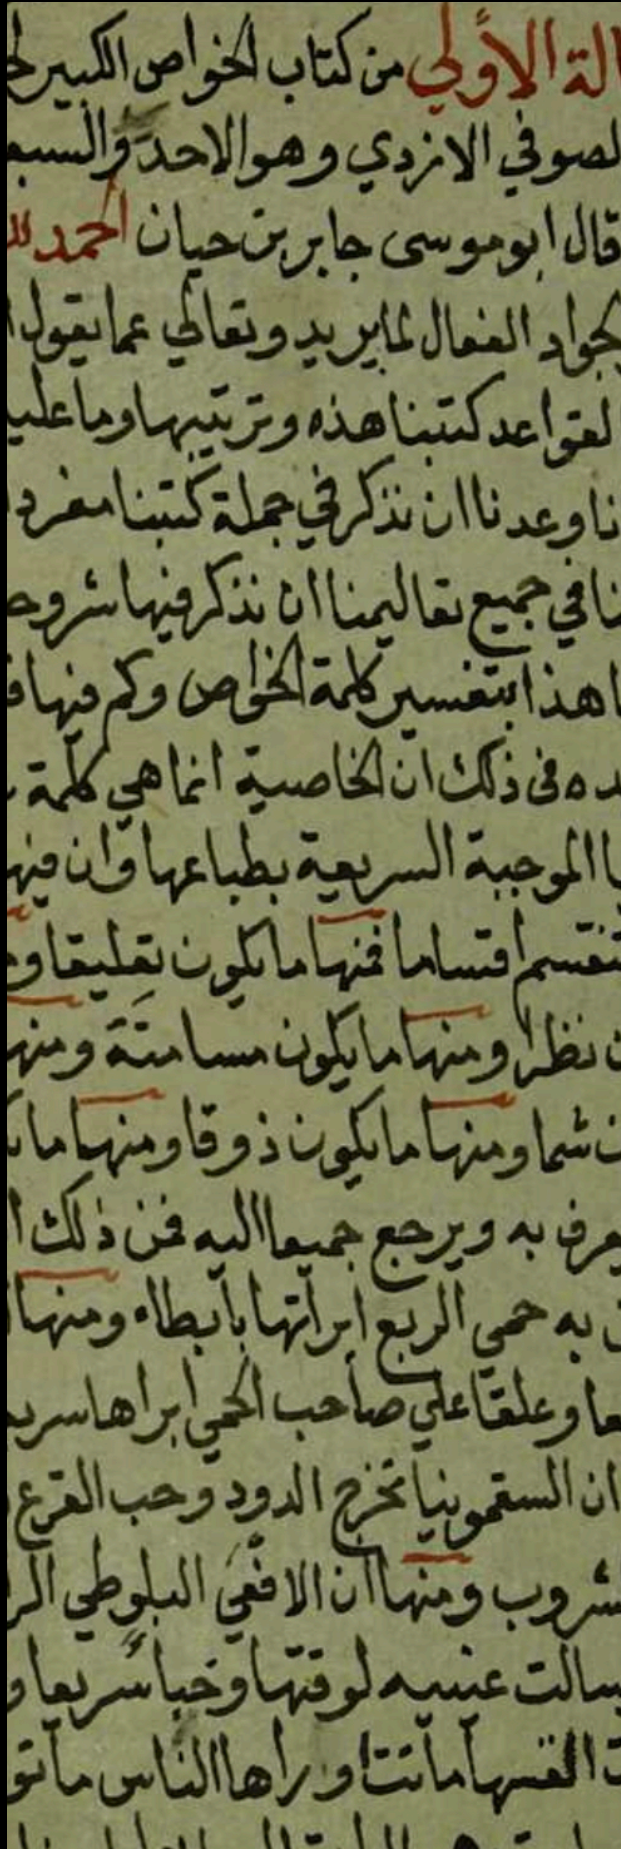 الة الاولي من كتاب الخواص الكبير
الصوفي الازدي وهو الاحد والسبع
قال ابو موسى جابر بن حيان الحمد لله
الجواد الفعال لما يريد وتعالي عما يقول ا
لقواعد كتبنا هذه وترتيبها وما علي
نا وعدنا ان نذكر في جملة كتبنا مفرد
نا في جميع تعاليمنا ان نذكر فيها شروح
ا هذا بتفسير كلمة الخواص وكم فيها
ده فى ذلك ان الخاصية انما هي كلمة
ا الموجبة السريعة بطباعها وان فيه
تنقسم اقساما فمنها ما يكون تعليقا و
ن نظرا ومنها ما يكون مسامتة ومنه
ن شما ومنها ما يكون ذوقا ومنها ما
يعرف به ويرجع جميعا اليه فمن ذلك ا
به حمي الربع ابراتها بابطاء ومنها
عا وعلقا علي صاحب الحمي ابراها سري
ان السقمونيا تخرج الدود وحب القرع
مشروب ومنها ان الافعي البلوطي الر
سالت عينيه لوقتها وحيا سريعا و
ماتت او راها الناس ماتو